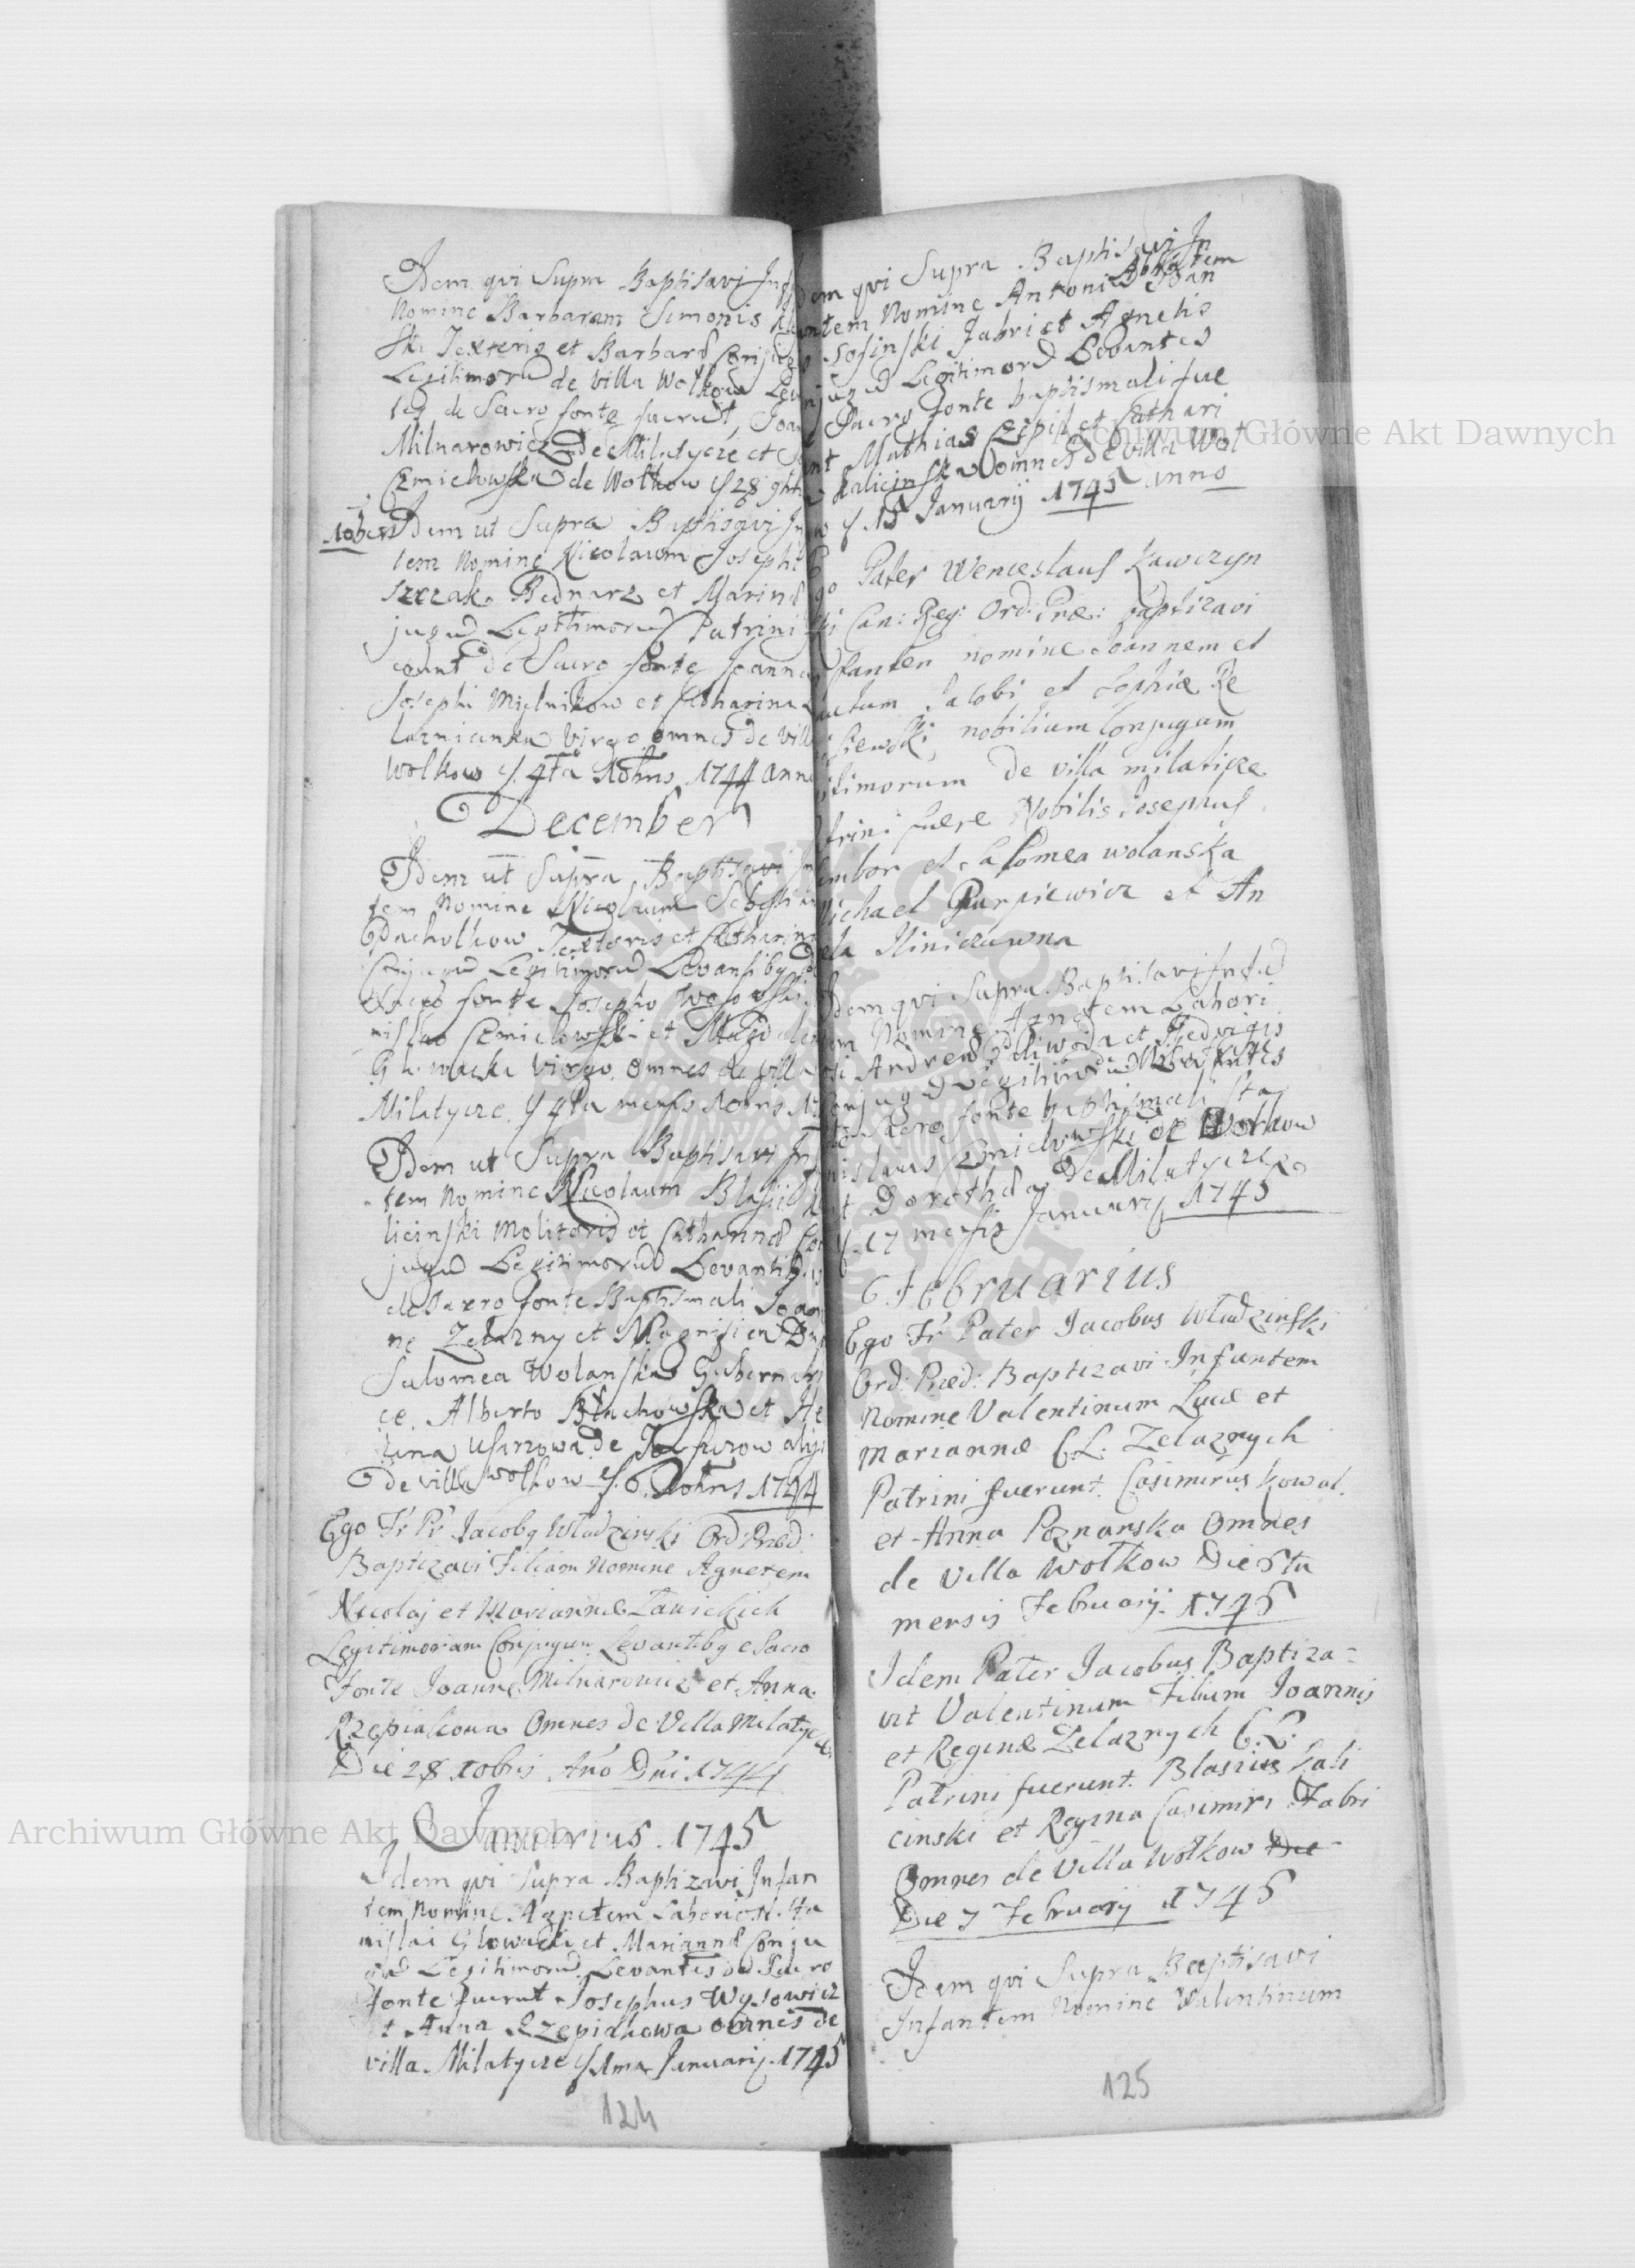 Idem qvi Supra Baptisavi Inf
Nomine Barbaram Simonis
ski Textoris et Barbaræ Conjug
Legitimorũ de villa Wołkow Levan
tes de Sacro fonte fuerũt, Joan
Milnarowicz de Milatycze et
Czmielowska de Wołkow 28
10bris Idem ut Supra Baptisavi In
tem Nomine Nicolaum Josephi
szczak Bednarz et Mariñæ
jugũ Legitimorũ Patrini
erunt de Sacro fonte Joannes
Josephi Mielnikow et Catharina
laznienka Virgo omnes de Villa
Wołkow 4ta 10bris 1744 anno
December
Idem ut Supra Baptisavi In
tem Nomine Nicolaum Sebasti
Pacholkow Textoris et Catharinæ
Conjugũ Legitimorũ Levantibq de
Sacro fonte Josepho Wesowski
nislao Czmielowski et Magdalena
Głowacka Virgo omnes de Villa
Milatycze 4ta mensis 10bris 17
Idem ut Supra Baptisavi In
tem Nomine Nicolaum Blasii
licinski Molitoris et Catharinæ Con
jugũ Legitimorũ Levantibus
de Sacro fonte Baptismali Joan
ne Zelazny et Magnifica
Salomea Wolanska Gubernatri
ce, Alberto Błachowska et He
lina
De villa Wołkow 6 10bris 1744
Ego Fr Pr Jacobq Władzinski Ord: Præd:
Baptizavi Filiam Nomine Agnetem
Nicolaj et Mariannæ Zawickich
Legitimorum Conjugum Levantibq e Sacro
Fonte Joanne Milnarowicz et Anna
Rzepiakowa Omnes de Villa Milatycze
Die 28 Xobris Año Dñi 1744
Januarius 1745
Idem qvi Supra Baptizavi Infan
tem Nomine Agnetem Laboriosi Sta
nislai Głowacki et Mariannæ Conju
gũ Legitimorũ Levantes de Sacro
fonte fuerut Josephus Wysowicz
et Anna Rzepiakowa omnes de
villa Milatycze 1ma Januarij 1745
124
Idem qvi Supra Baptisavi In
fantem Nomine Antoni Joan
Sosinski Fabri et Agnetis
Conjugũ Legitimorũ Levantes
Sacro fonte baptismali fue
runt Mathias Czepil et Cathari
na Kalicinska Domnes de villa Woł
kow 15 Januarij 1745 anno
Ego Pater Wenceslaus Kawczyn
ski Can: Reg: Ord: Præ: baptizavi
Infantem nomine Joannem et
natum Jacobi et Sophiæ Re
siewski, nobilium Conjugum
Legitimorum de villa milaticze
Patrini fuere Nobilis Josephus
Sembor et Salomea wolanska
Michael Purpiewicz et An
iela Iliniczuwna
Idem qvi Supra Baptisavi Infa
ntem Nomine Agnetem Labori
osi Andreæ Paliwoda et Hedvigis
Conjugũ Legitimorũ Levantes
de Sacro fonte baptismali Sta
nislaus Czmielowski de Wołkow
et Dorothea De Milatycze
17 mensis January 1745
Februarius
Ego Fr Pater Jacobus Władzinski
Ord: Præd: Baptizavi Infantem
Nomine Valentinum Lucæ et
Mariannæ C. L. Zelaznych
Patrini fuerunt Casimirus Kowal
et Anna Poznanska Omnes
de Villa Wołkow Die 5ta
mensis Februarij 1745
Idem Pater Jacobus Baptiza-
vit Valentinum Filium Joannis
et Reginæ Zelaznych C. L.
Patrini fuerunt Blasius Kali
cinski et Regina Casimiri Fabri
Omnes de Villa Wołkow Die
Die 7 Februarij 1745
Idem qvi Supra Baptisavi
Infantem Nomine Valentinum
125
Archiwum Główne Akt Dawnych
Archiwum Główne Akt Dawnych